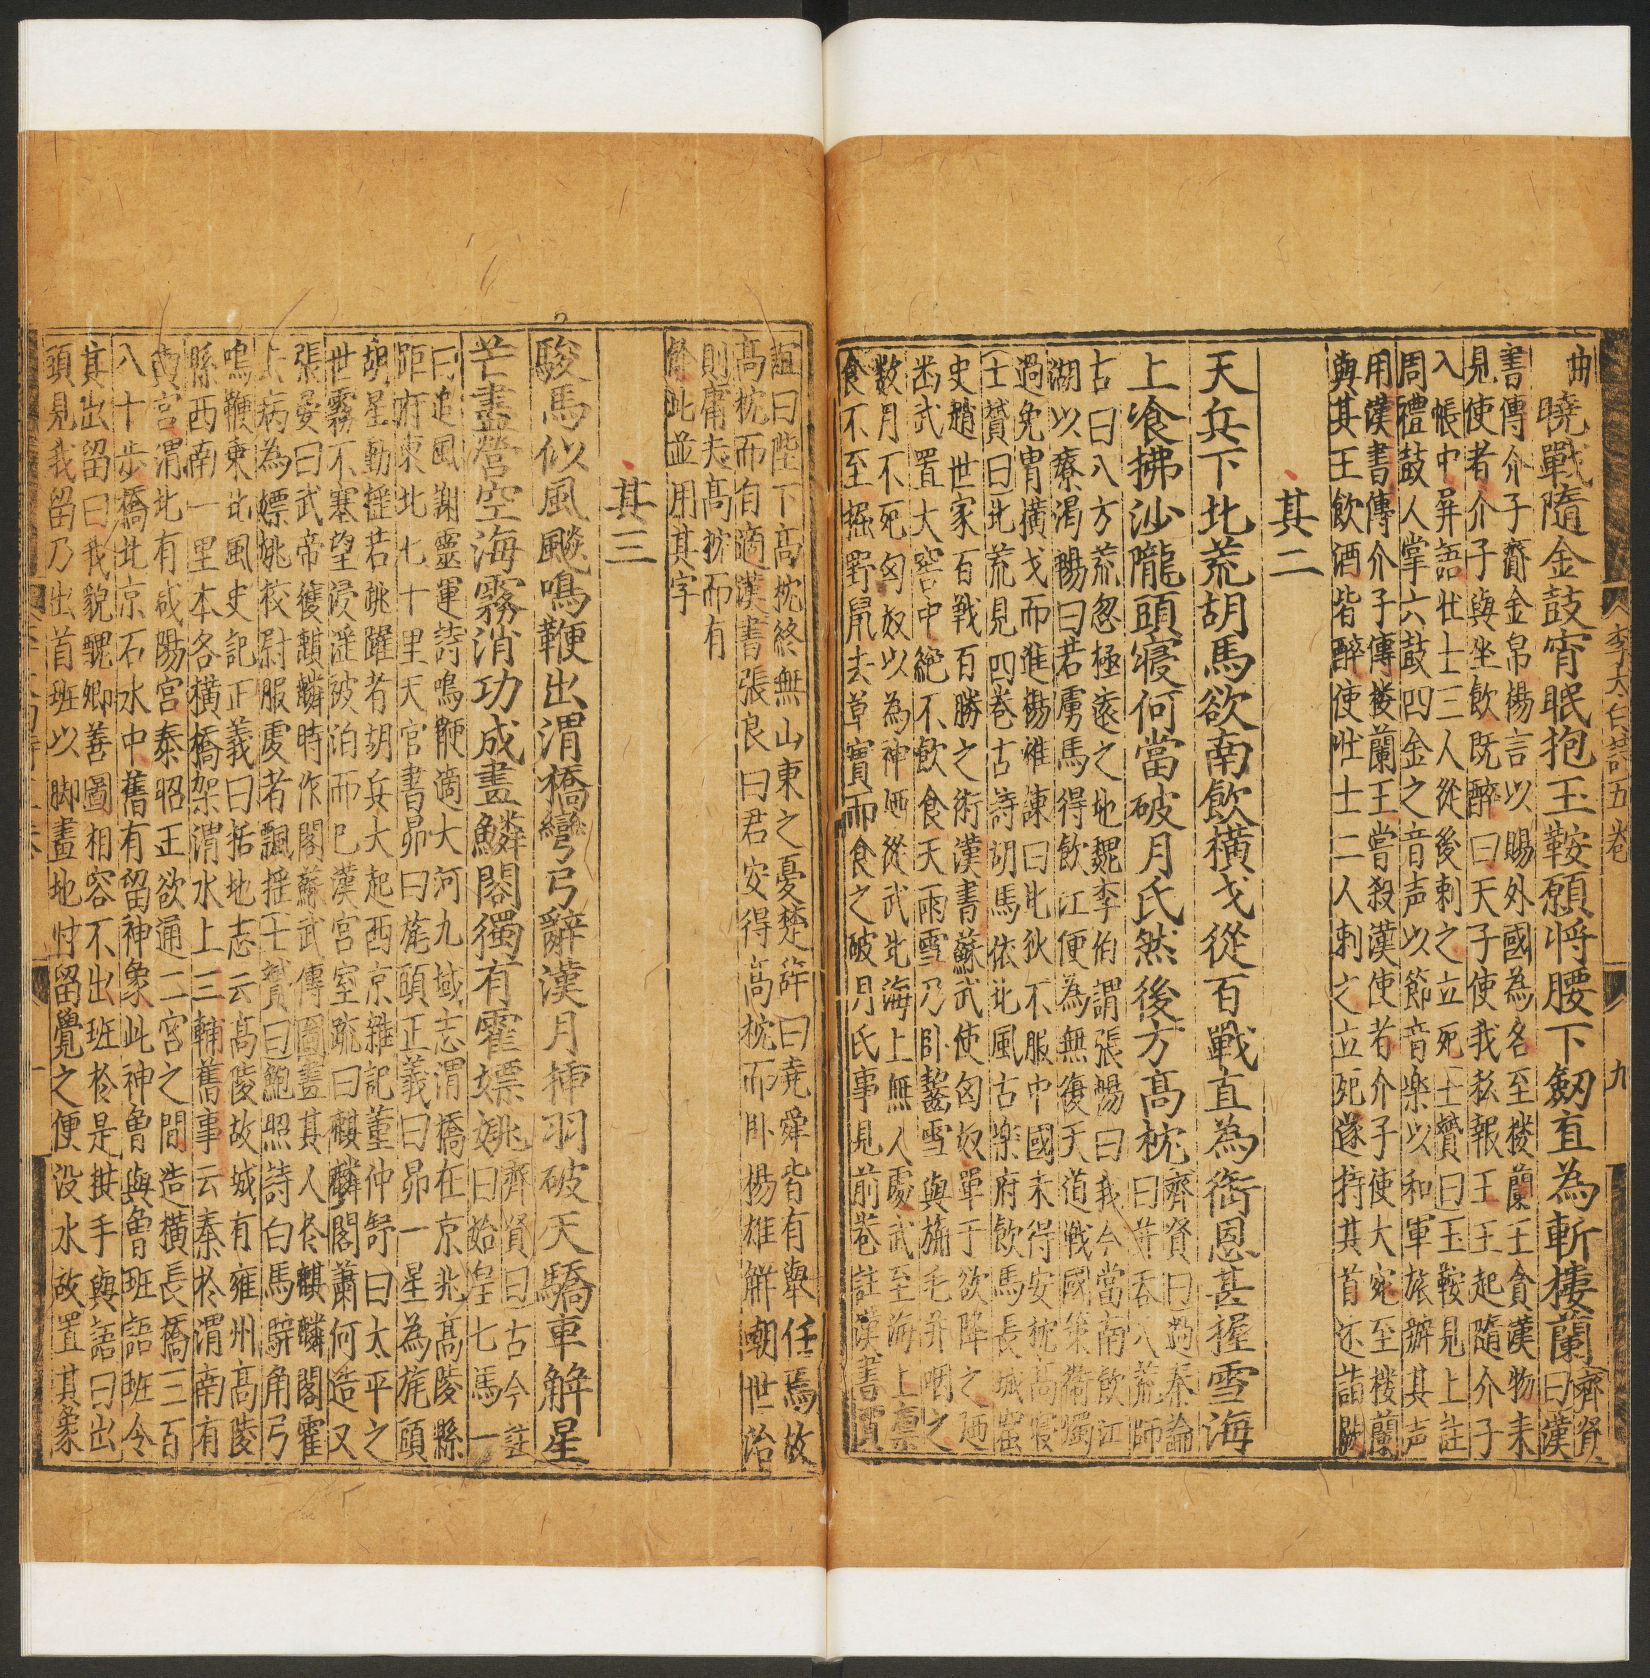 曲
曉戰隨金鼓宵眠抱玉鞍願將腰下劒直為斬樓蘭齊賢曰漢
書傳介子齎金帛楊言以賜外國為名至楼蘭王貪漢物未
見使者介子與坐飲既醉曰天子使我私報王王起隨介子
入帳中屏語壯士三人從後刺之立死士贇曰玉鞍見上註
周禮鼓人掌六鼓四金之音声以節音楽以和軍旅辨其声
用漢書傳介子傳楼蘭王嘗殺漢使者介子使大宛至楼蘭
與其王飲酒皆醉使壮士二人刺之立死遂持其首还詣闕
其二
天兵下北荒胡馬欲南飲橫戈從百戰直為銜恩甚握雪海
上飡拂沙隴頭寢何當破月氏然後方高枕齊賢曰過秦論
曰并吞八荒師
古曰八方荒忽極遠之地魏李伯謂張暢曰我今當南飲江
湖以療渴暢曰若虜馬得飲江便為無復天道戰國策衛獨
過免胄橫戈而進楊雄諫曰北狄不服中國未得安枕高寢
士贇曰北荒見四卷古詩胡馬依北風古楽府飲馬長城窟
史趙世家百戰百勝之術漢書蘇武使匈奴單于欲降之廼
幽武置大窖中絕不飲食天雨雪乃卧齧雪與旃毛并咽之
数月不死匈奴以為神廼從武北海上無人處武至海上禀
食不至掘野鼠去草實而食之破月氏事見前卷註漢書賈
李太白詩五卷
九
誼曰陛下高枕終無山東之憂楚辞曰堯舜皆有舉任焉故
高枕而有適漢書張良曰君安得高枕而卧揚雄解嘲世治
則庸夫高枕而有
餘此並用其字
其三
駿馬似風飈鳴鞭出渭橋彎弓辭漢月揷羽破天驕車解星
芒盡營空海霧消功成畫麟閣獨有霍嫖姚齊賢曰古今註
曰始皇七馬一
曰追風謝靈運詩鳴鞭適大河九域志渭橋在京兆高陵縣
距府東北七十里天官書昴曰旄頭正義曰昴一星為旄頭
胡星動揺若跳躍者胡兵大起西京雜記董仲舒曰太平之
世霧不塞望浸淫被泊而已漢宮室疏曰麒麟閣蕭何造又
張晏曰武帝獲麒麟時作閣蘇武傳圖畫其人於麒麟閣霍
去病為嫖姚校尉服虔者飄揺士贇曰鮑照詩白馬騂角弓
鳴鞭乗北風史記正義曰括地志云高陵故城有雍州高陵
縣西南一里本名橫橋架渭水上三輔舊事云秦於渭南有
興宮渭北有咸陽宮秦昭王欲通二宮之間造橫長橋三百
八十歩橋北京石水中舊有留神象此神曾與魯班語班令
其出留曰我貌醜卿善圖相容不出班於是拱手與語曰出
頭見我留乃出首班以脚畫地忖留覺之便没水故置其象